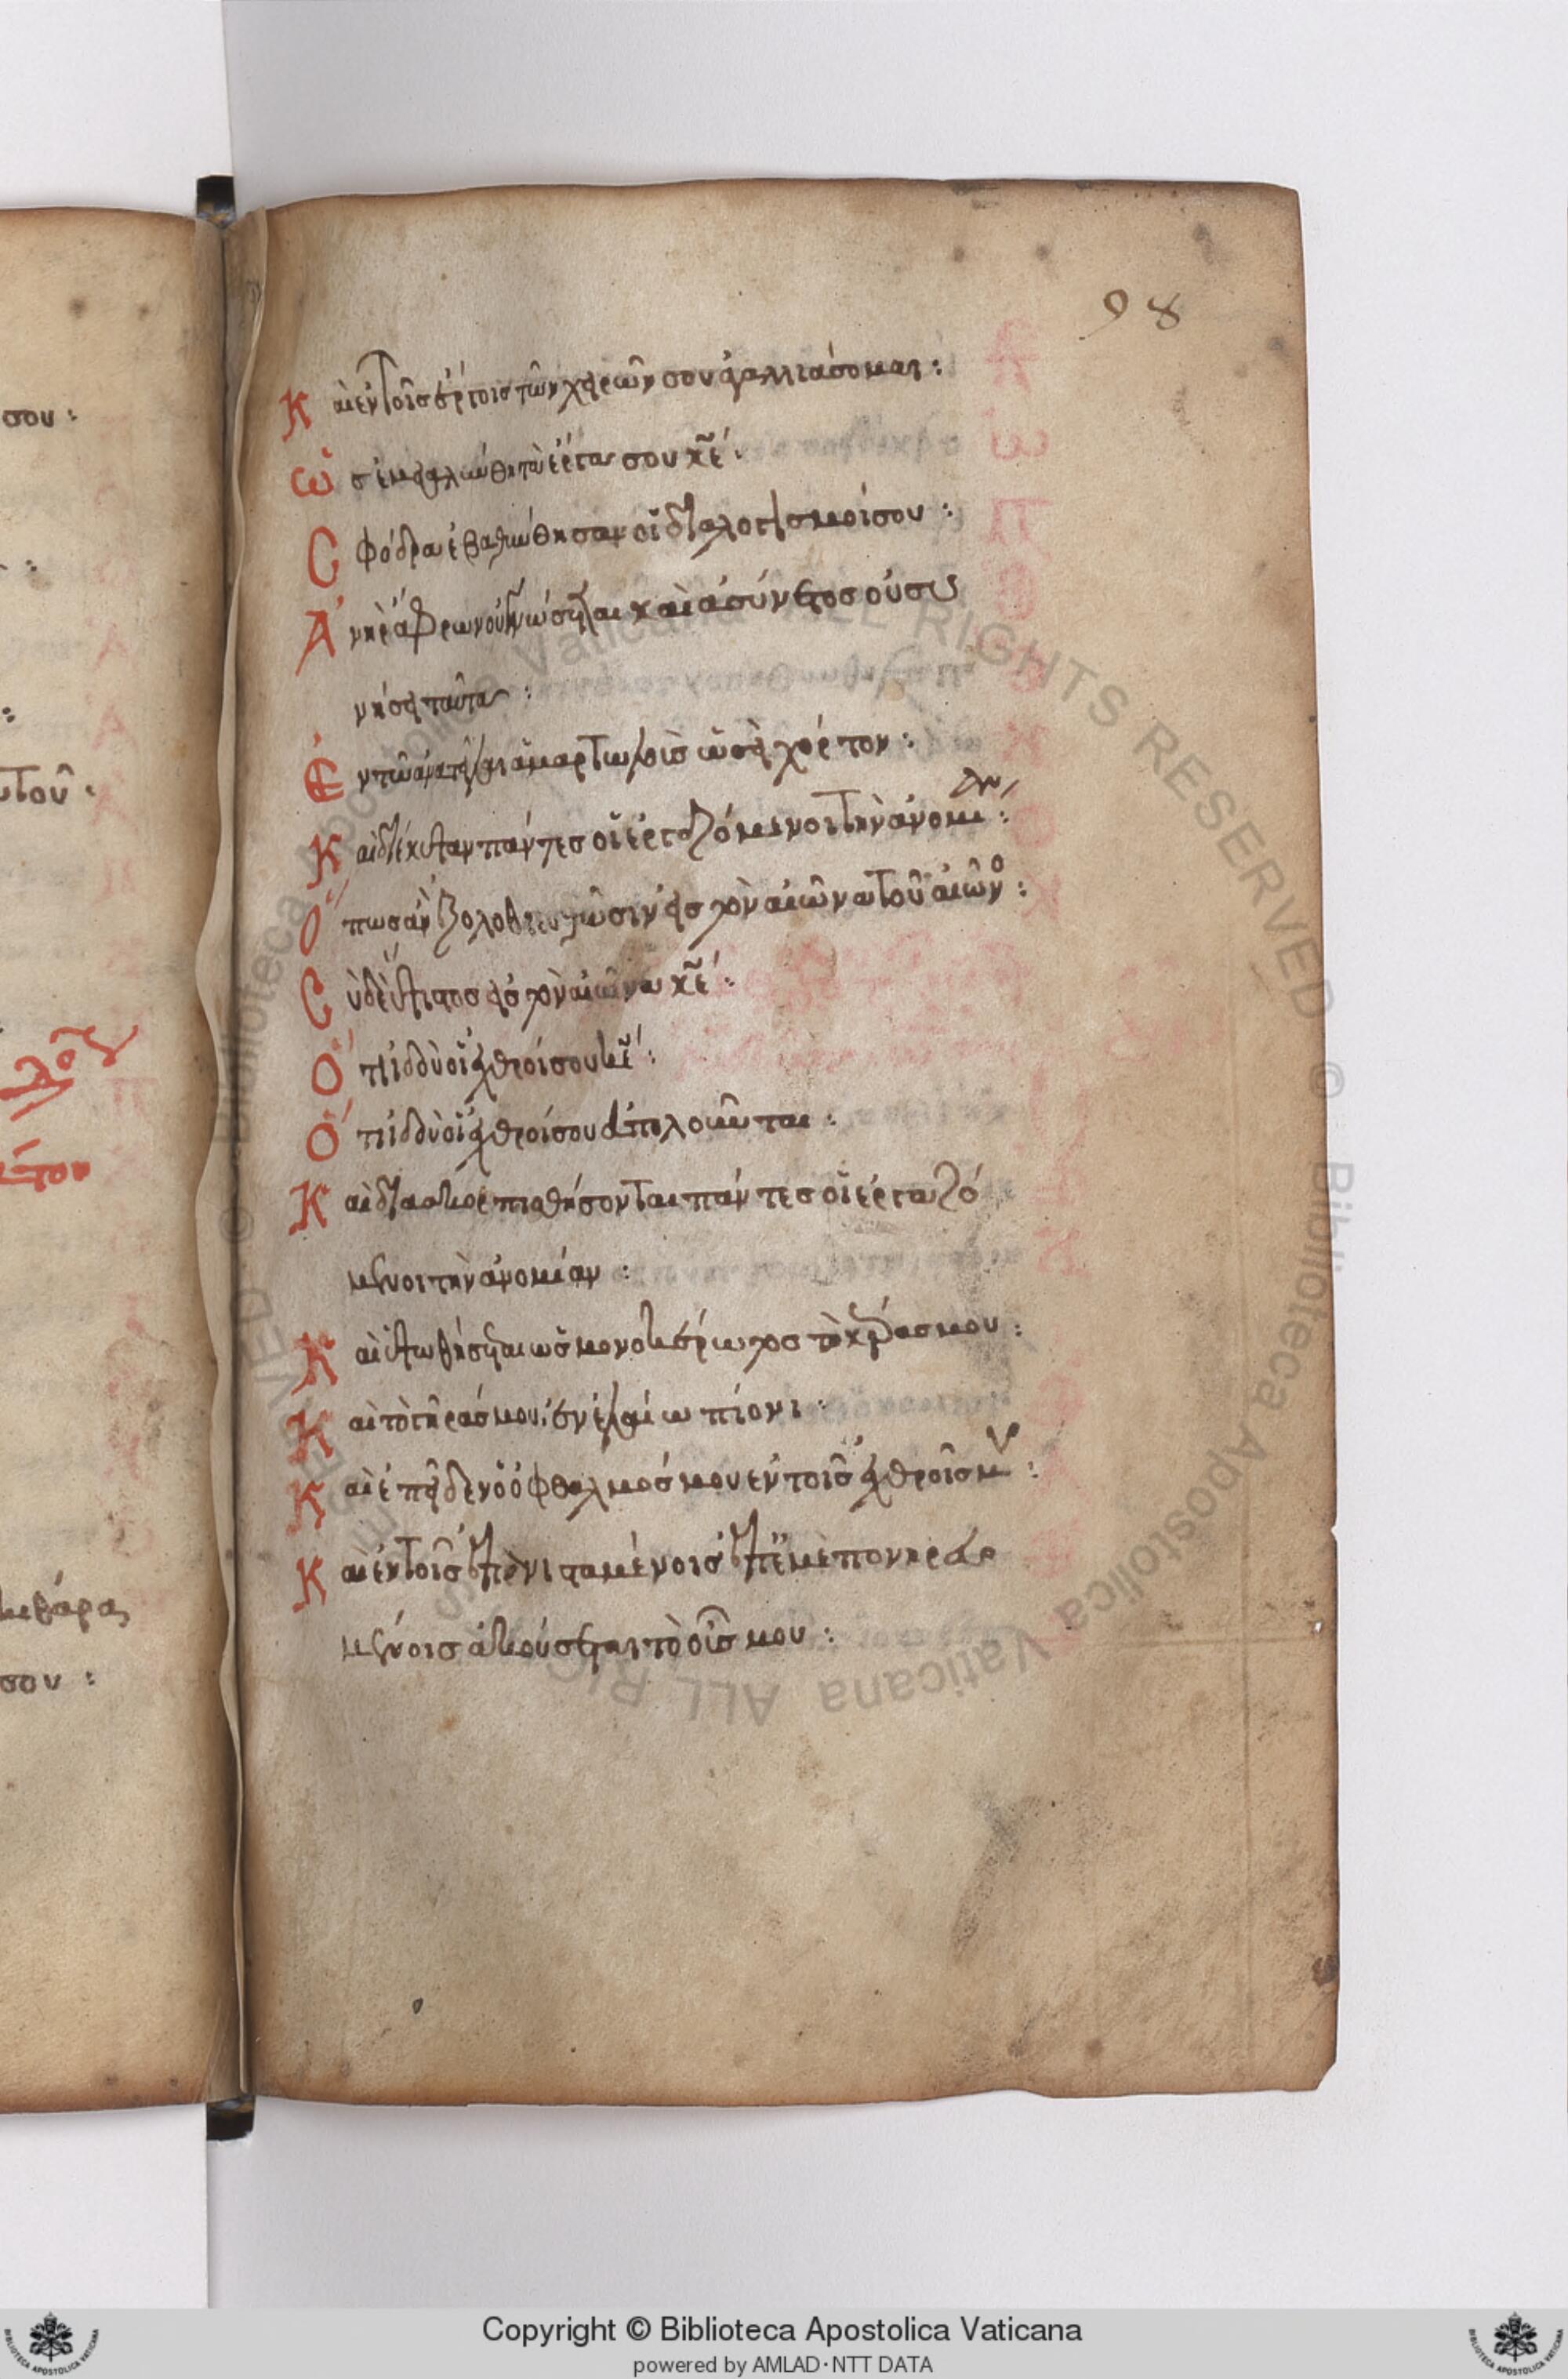 98
Καὶ ἐν τοῖς ἔργοις τῶν χειρῶν σου ἀγαλλιάσομαι :
Ὡς ἐμεγαλύνθη τὰ ἔργα σου κ̅ε̅ :
Σφόδρα ἐβαθύνθησαν οἱ διαλογισμοί σου :
Ἀνὴρ ἄφρων οὐ γνώσεται καὶ ἀσύνετος οὐ συ
νήσει ταῦτα :
Ἐν τῶ ἀνατεῖλαι ἁμαρτωλοὺς ὡσεὶ χόρτον :
Καὶ διέκυψαν πάντες οἱ ἐργαζόμενοι τὴν ἀνομίαν :
Ὅπως ἂν ἐξολοθρευθῶσιν εἰς τὸν αἰῶνα τοῦ αἰῶνο :
Σὺ δὲ ὕψιστος εἰς τὸν αἰῶνα κ̅ε̅ :
Ὅτι ἰδοὺ οἱ ἐχθροί σου κ̅ε̅ :
Ὅτι ἰδοὺ οἱ ἐχθροί σου ἀπολοῦνται :
Καὶ διασκορπισθήσονται πάντες οἱ ἐργαζό
μενοι τὴν ἀνομίαν :
Καὶ ὑψωθήσεται ὡς μονοκέρωτος τὸ κέρας μου :
Καὶ τὸ γῆράς μου ἐν ἐλαίω πίονι :
Καὶ ἐπεῖδεν ὁ ὀφθαλμός μου ἐν τοῖς ἐχθροῖς μου :
Καὶ ἐν τοῖς ἐπανισταμένοις ἐπ ἐμὲ πονηρευο
μένοις ἀκούσεται τὸ οὖς μου :
σου :
Copyright © Biblioteca Apostolica Vaticana
powered by AMLAD·NTT DATA